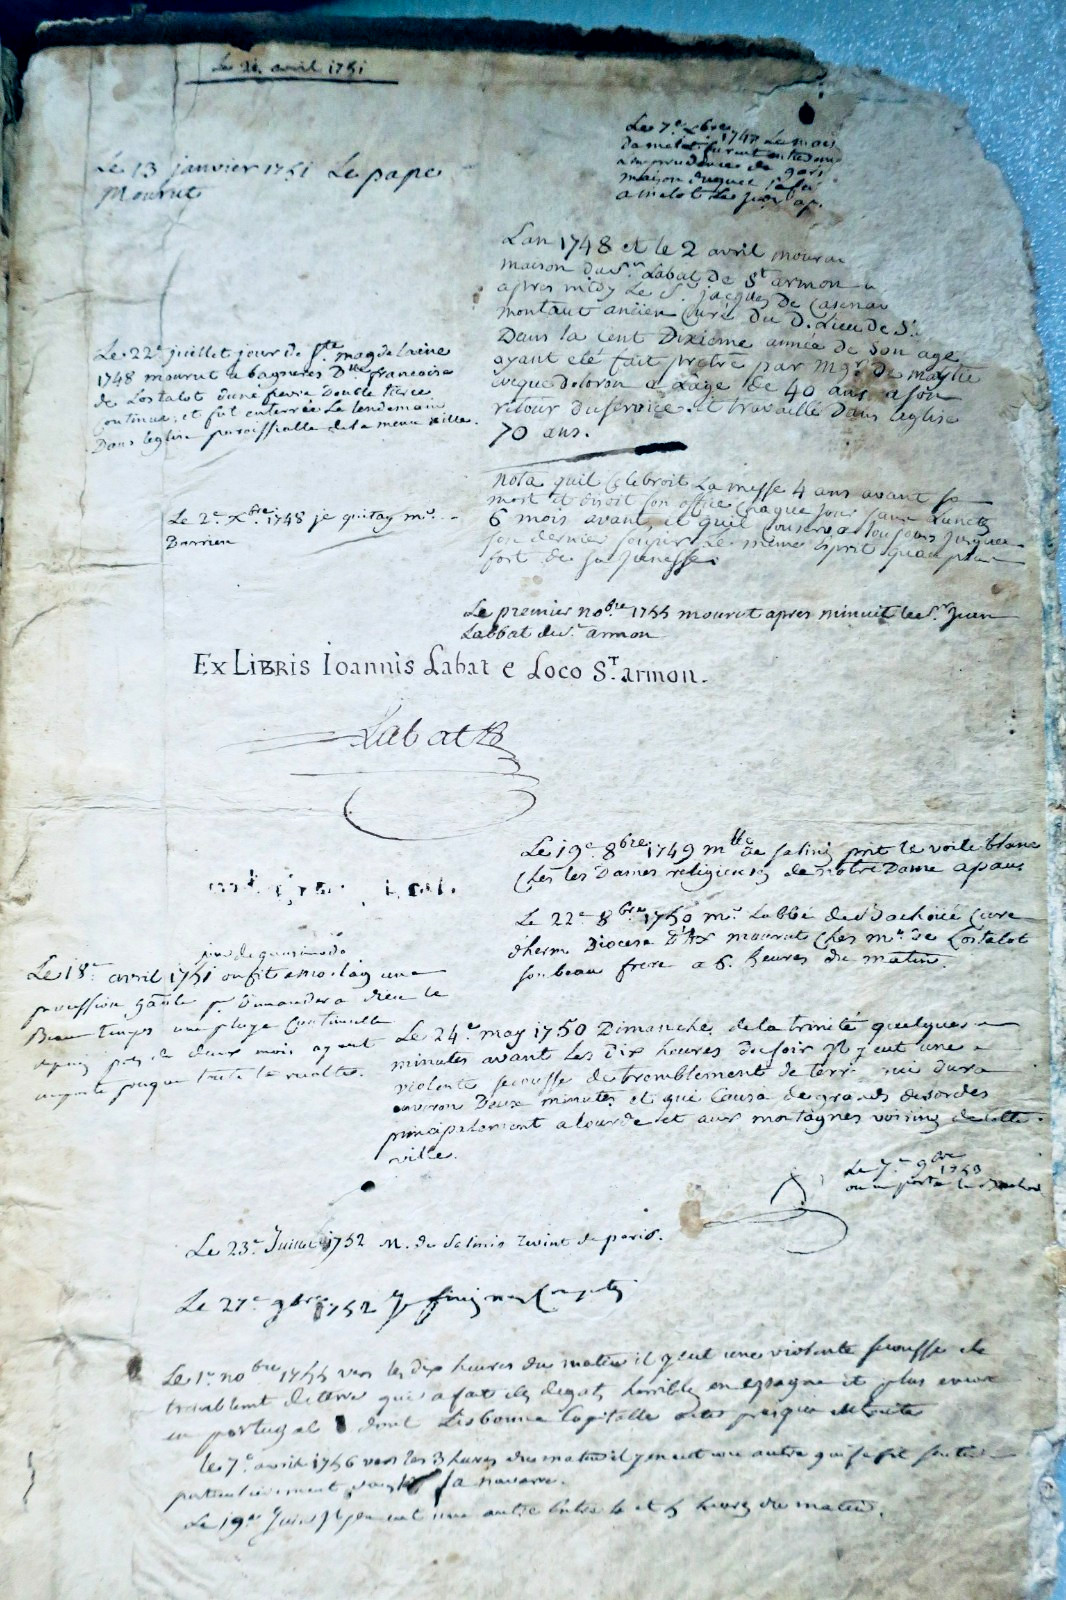 Le 20. avril 1751
Le 13 janvier 1751 Le pape
Mourut
Le 7e 1747
maison
a melot Le jour ap.
Lan 1748 et le 2 avril mouru
maison du Sr. Labat De St armon
apres midy Le S. jacques De Casenau
montaut ancien Curé Du D. Lieu de St.
Dans la Cent Dixieme année de Son age
ayant eté fait pretre par Mgr. De maytie
eveque doloron a Lâge de 40 ans a son
retour du service. et travaillé Dans leglise
70 ans.
Le 22e juillet jour de Ste. magdelaine
1748 mourut a bagneres Dlle francoise
de Lostalot dune fievre Double tierce
continue, et fut enterrée Le lendemain
Dans leglise paroissialle de la meme ville.
nota quil Celebroit La messe 4 ans avant sa
mort et disoit son office chaque jour sans Lunete
6 mois avant, et quil conserva toujours jusques
son dernier soupir Le meme esprit
fort de sa jeunesse.
Le 2e xbre. 1748 je quitay mr.
Darrieu
Le premier nobre 1755 mourut apres minuit le Sr. Jean
Labbat de St. armon
Ex Libris Ioannis Labat e Loco St. armon.
Labat
Le 19e 8bre 1749 mlle de salinis prit le voile blanc
Ches les Dames religieuses de notre Dame a pau
Le 22e 8bre 1750 mr. Labbé de Curé
dherm Diocese D'Ax mourut Ches mr. De Lostalot
son beau frere a 6. heures du matin.
jour de quasimodo
Le 18e avril 1751 on fit a morlaas une
procession gnãlle pr. Demander a Dieu le
Beau temps une pluye Continuelle
depuis pres de deux mois ayant
presque toute la recolte.
Le 24e may 1750 Dimanche de la trinité quelques
minutes avant Les Dix heures du soir Il y eut une
violente secousse de tremblement de terre qui dura
environ Deux minutes et qui Causa de grands desordes
principalement a lourde et aux montagnes voisines de cette
ville.
Le 7e 9bre
1753
on a porté le
Le 23e Juillet 1752 M. de Salinis revint de paris.
Le 27e 9bre 1752 Je
Le 1er nobre 1755 vers les dix heures du matin il y eut une violente secousse de
tremblement de terre qui a fait des degats horribles en espagne et plus encore
en portugal dont Lisbonne Capitalle a été presque detruite
le 7e. avril 1756 vers les 3 heures du matin il y en eut une autre qui se fit sentir
particulierement dans la navarre.
Le 19e Juin Il y en eut une autre entre 4 et 5 heures du matin.